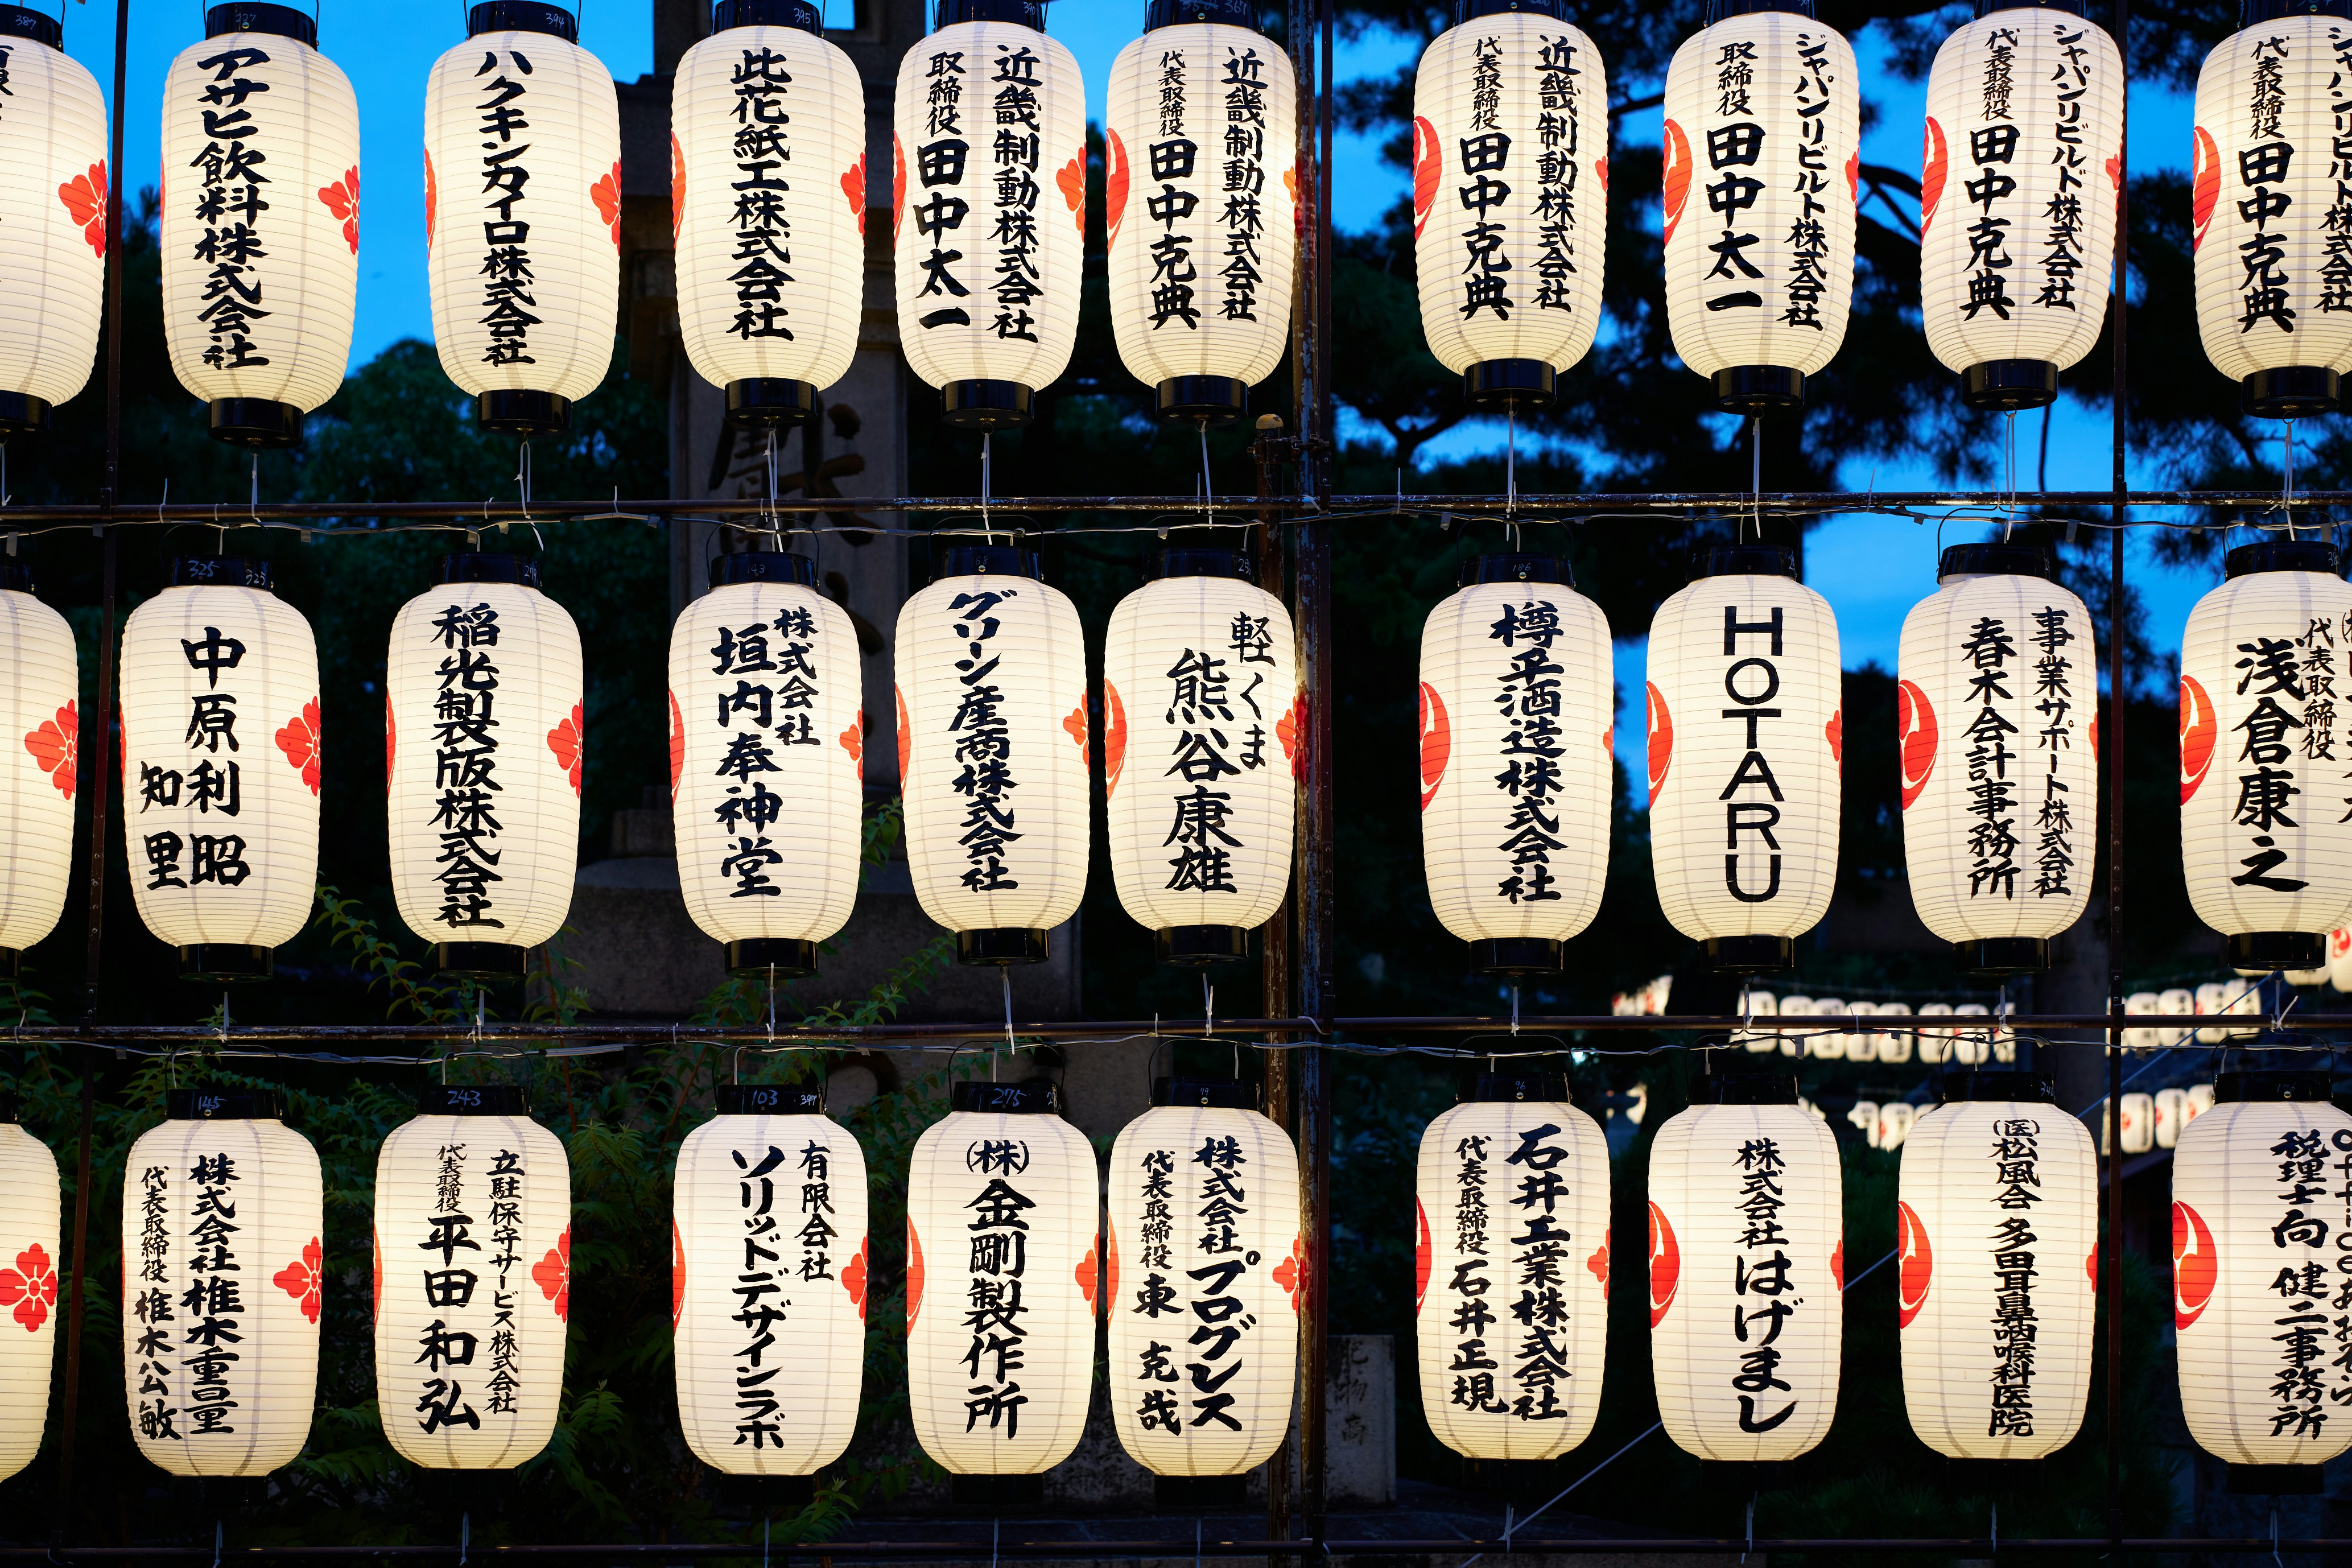 アサヒ飲料株式会社
ハクキンカイロ株式会社
此花紙工株式会社
近畿制動株式会社
取締役 田中太一
近畿制動株式会社
代表取締役 田中克典
近畿制動株式会社
代表取締役 田中克典
ジャパンリビルト株式会社
取締役 田中太一
ジャパンリビルド株式会社
代表取締役 田中克典
ジャパンリビルド株式会社
代表取締役 田中克典
中原利昭
知里
稲光製版株式会社
株式会社
垣内奉神堂
グリーン産商株式会社
軽くま
熊谷康雄
樽平酒造株式会社
HOTARU
事業サポート株式会社
春木会計事務所
代表取締役
浅倉康之
株式会社椎木重量
代表取締役 椎木公敏
立駐保守サービス株式会社
代表取締役 平田和弘
有限会社
ソリッドデザインラボ
(株)金剛製作所
株式会社プログレス
代表取締役 東克哉
石井工業株式会社
代表取締役 石井正規
株式会社はげまし
(医)松風会 多田耳鼻咽喉科医院
税理士向 健二事務所
325
243
103
275
145